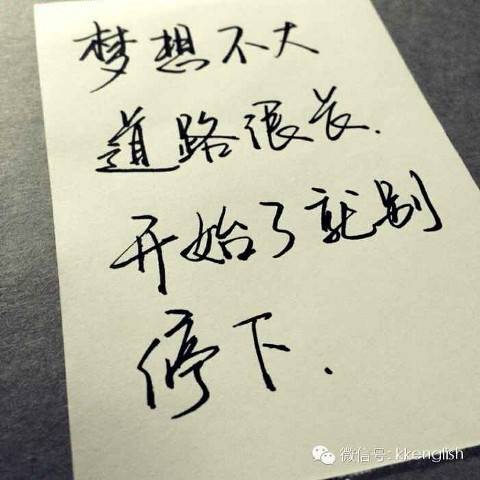 梦想不大
道路很长.
开始了就别
停下.
微信号: kkenglish